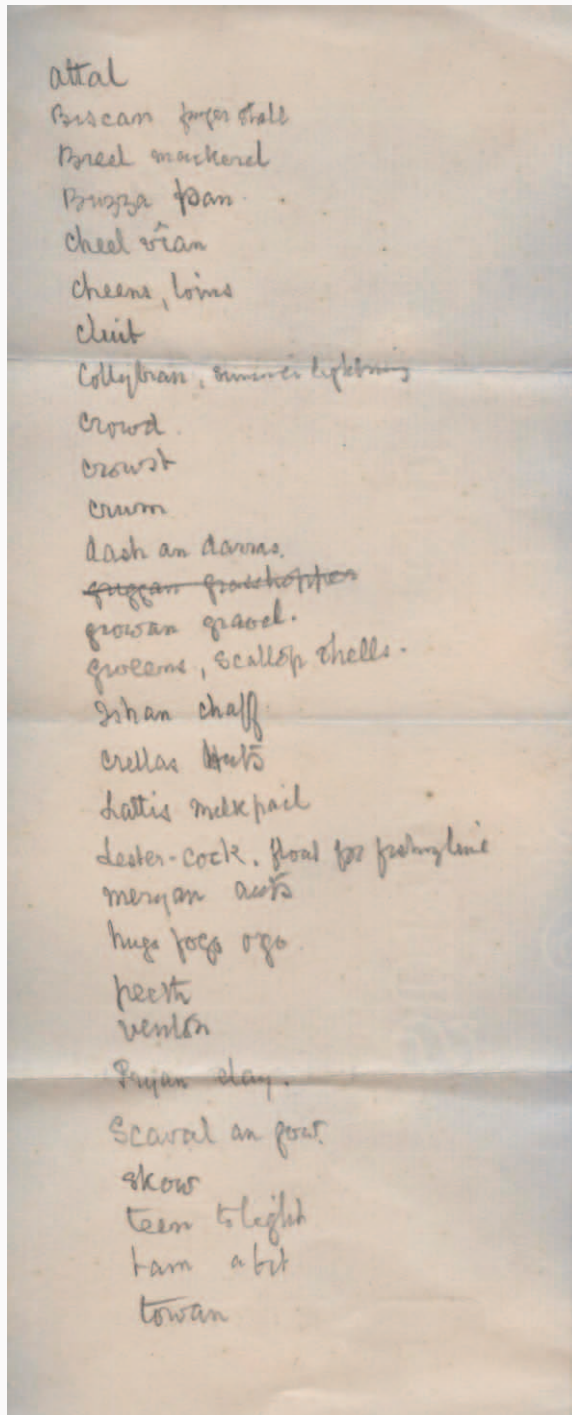 attal
Biscan finger stall
Breel mackerel
Buzza pan
cheel vîan
cheens, loins
cluit
Collybran, summer lightning
crowd
crowst
crum
dash an darras.
griggan grasshopper
growan gravel.
groceans, scallop shells.
Ishan chaff
crellas Huts
Lattis milkpail
Lester-cock. float for fishing line
meryan ants
hugo fogo ogo
peeth
venton
Pryan clay.
Scaval an gow.
skow
teen to light
tam a bit
towan